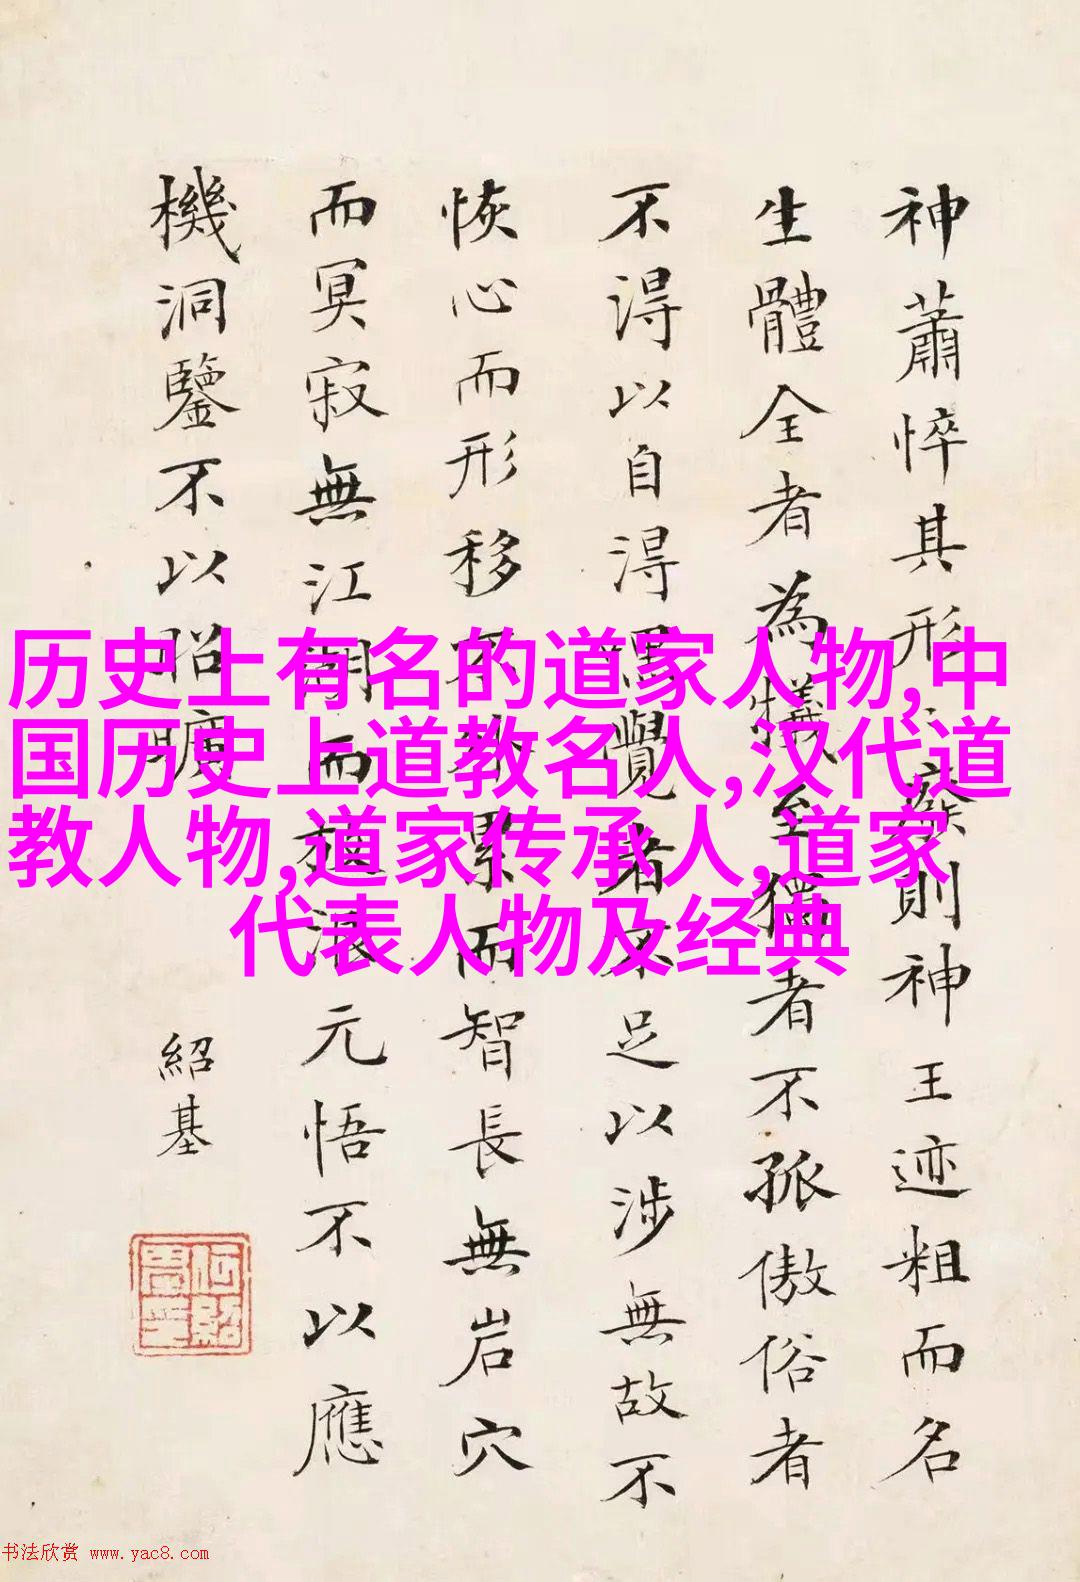 神蕭悴其形廢則神王迹粗而名
生體全者為犧至獨者不孤傲俗者
不得以自得覺者不足以涉無故不
恢心而形移不外累而智長無岩穴
而冥寂無江湖而放浪元悟不以應
機洞鑒不以昭曠
紹基
何紹基印
历史上有名的道家人物,中
国历史上道教名人,汉代道
教人物,道家传承人,道家
代表人物及经典
书法欣赏 www.yac8.com